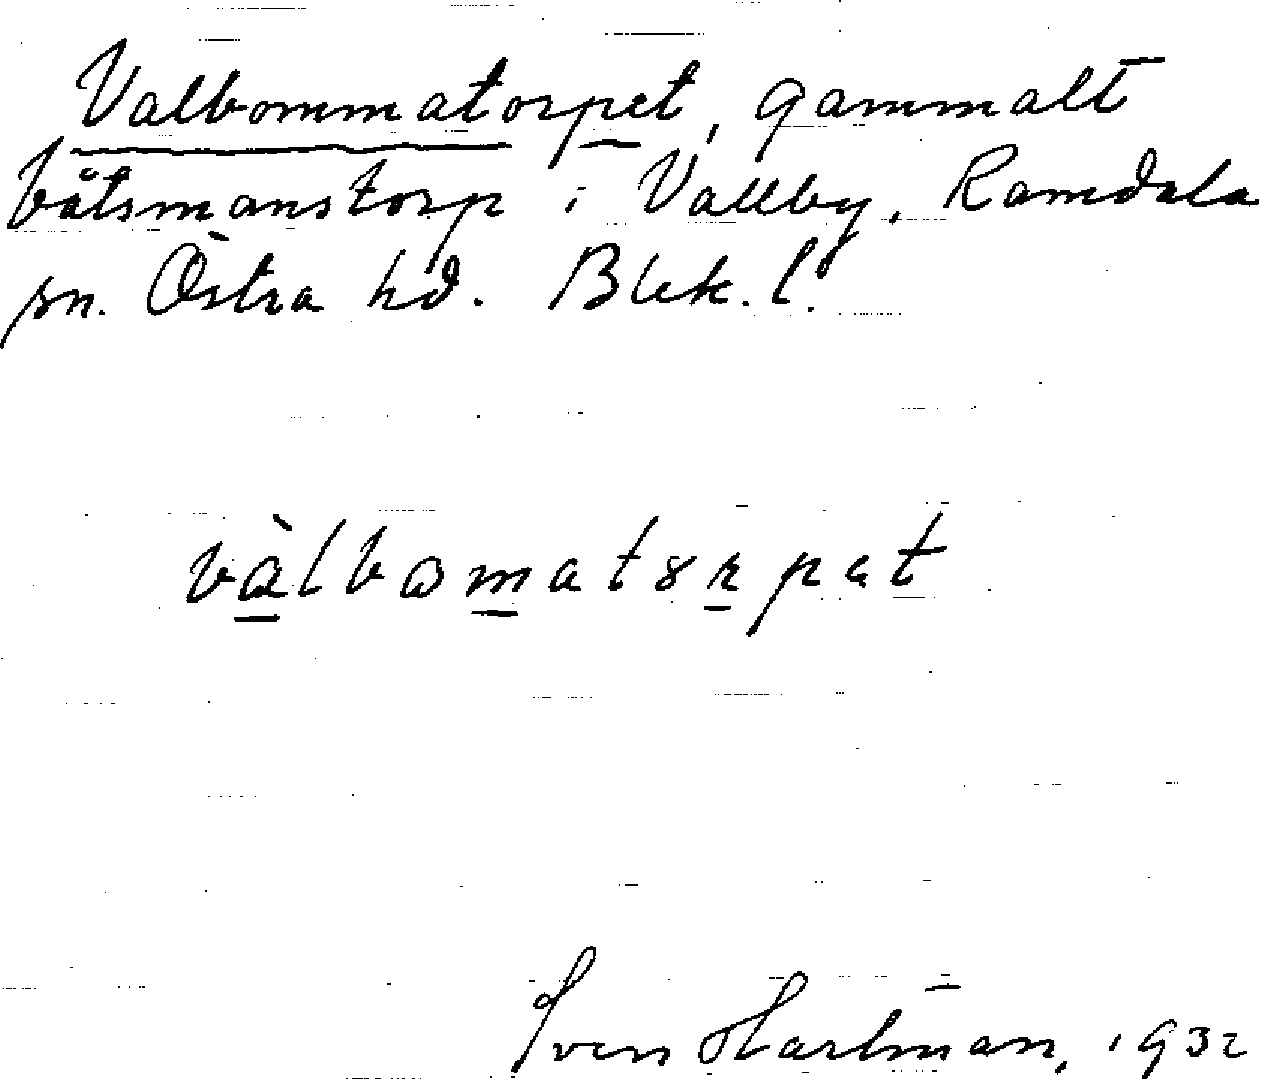 Valbommatorpet, gammalt
båtsmanstorp i Vallby, Ramdala
sn. Östra hd. Blek. l.
vàlbωmatȣrpat
Sven Hartman, 1932